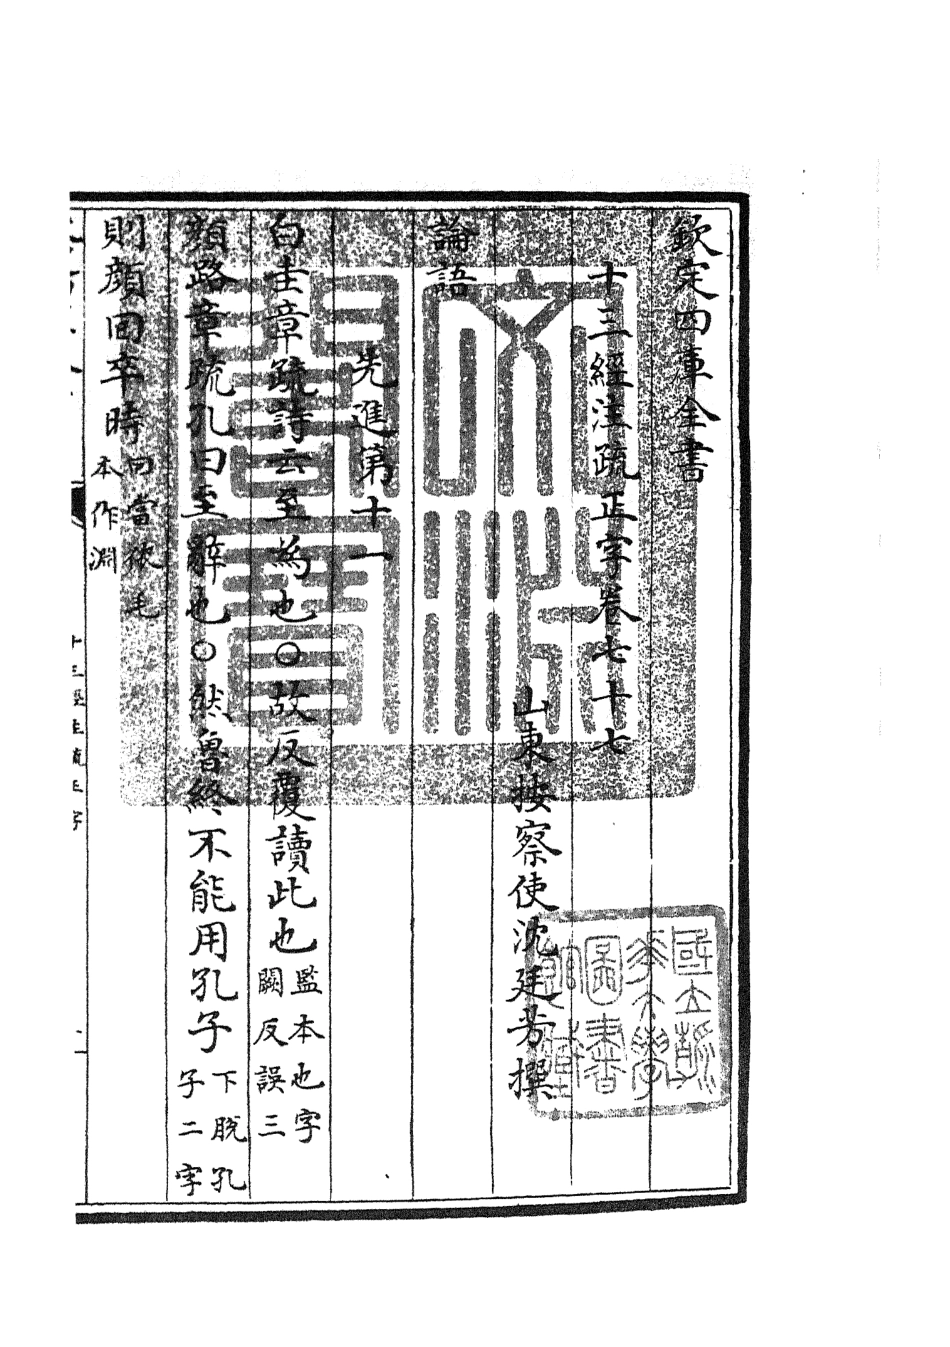 欽定四庫全書
十三經注疏正字卷七十七
山東按察使沈廷芳撰
論語
先進第十一
白圭章疏詩云至為也○故反覆讀此也
監本也字
闕反誤三
顏路章疏孔曰至辭也○然魯終不能用孔子
下脫孔
子二字
則顏回卒時
回當依毛
本作淵
十三經注疏正字
一
文淵閣寶
國立清華大學圖書館藏